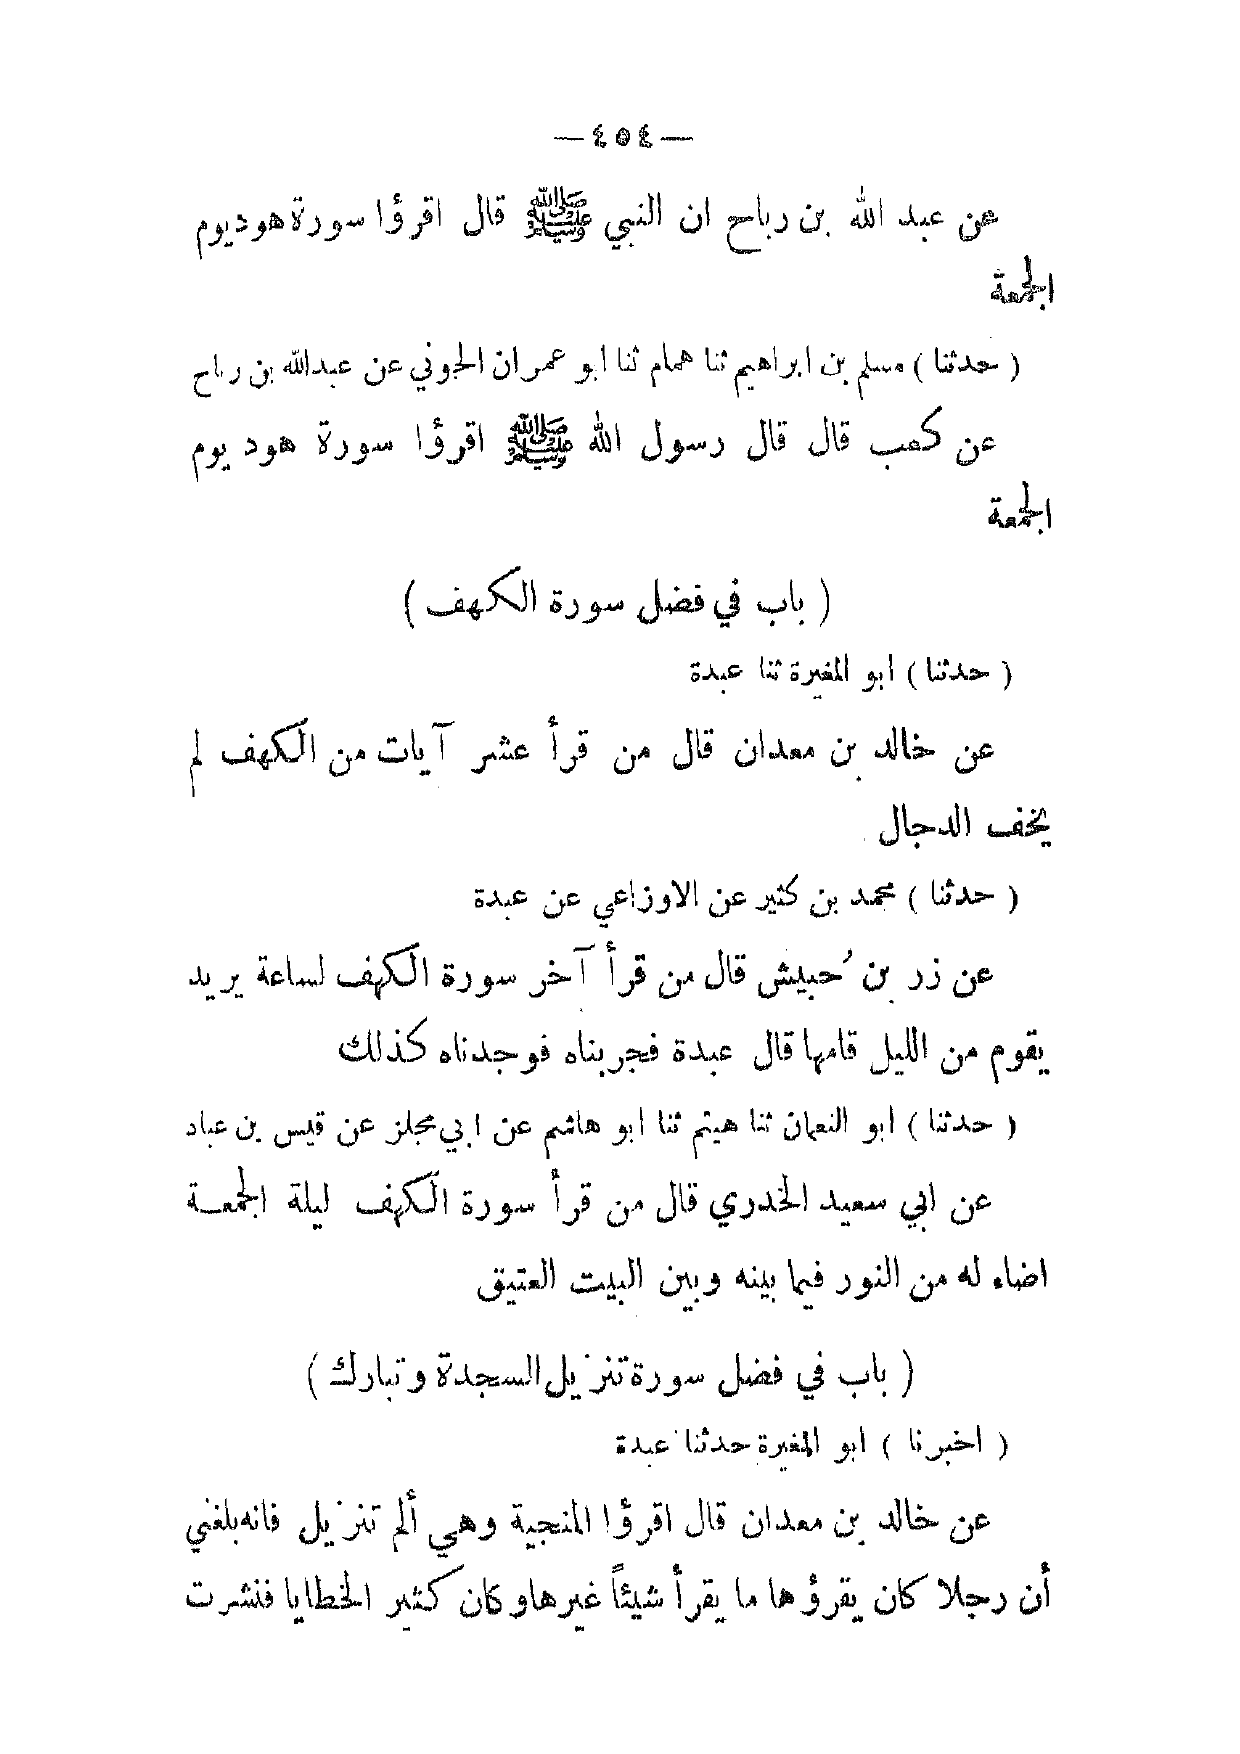 — ٤٥٤ —
عن عبد الله بن رباح ان النبي ﷺ قال اقرؤا سورة هود يوم
الجمعة
( حدثنا ) مسلم بن ابراهيم ثنا همام ثنا ابو عمران الجوني عن عبدالله بن رباح
عن كعب قال قال رسول الله ﷺ اقرؤا سورة هود يوم
الجمعة
( باب في فضل سورة الكهف )
( حدثنا ) ابو المغيرة ثنا عبدة
عن خالد بن معدان قال من قرأ عشر آيات من الكهف لم
يخف الدجال
( حدثنا ) محمد بن كثير عن الاوزاعي عن عبدة
عن زر بن حُبيش قال من قرأ آخر سورة الكهف لساعة يريد
يقوم من الليل قامها قال عبدة فجربناه فوجدناه كذلك
( حدثنا ) ابو النعمان ثنا هيثم ثنا ابو هاشم عن ابي مجلز عن قيس بن عباد
عن ابي سعيد الخدري قال من قرأ سورة الكهف ليلة الجمعة
اضاء له من النور فيما بينه وبين البيت العتيق
( باب في فضل سورة تنزيل السجدة وتبارك )
( اخبرنا ) ابو المغيرة حدثنا عبدة
عن خالد بن معدان قال اقرؤا المنجية وهي ألم تنزيل فانه بلغني
أن رجلا كان يقرؤها ما يقرأ شيئاً غيرها وكان كثير الخطايا فنشرت